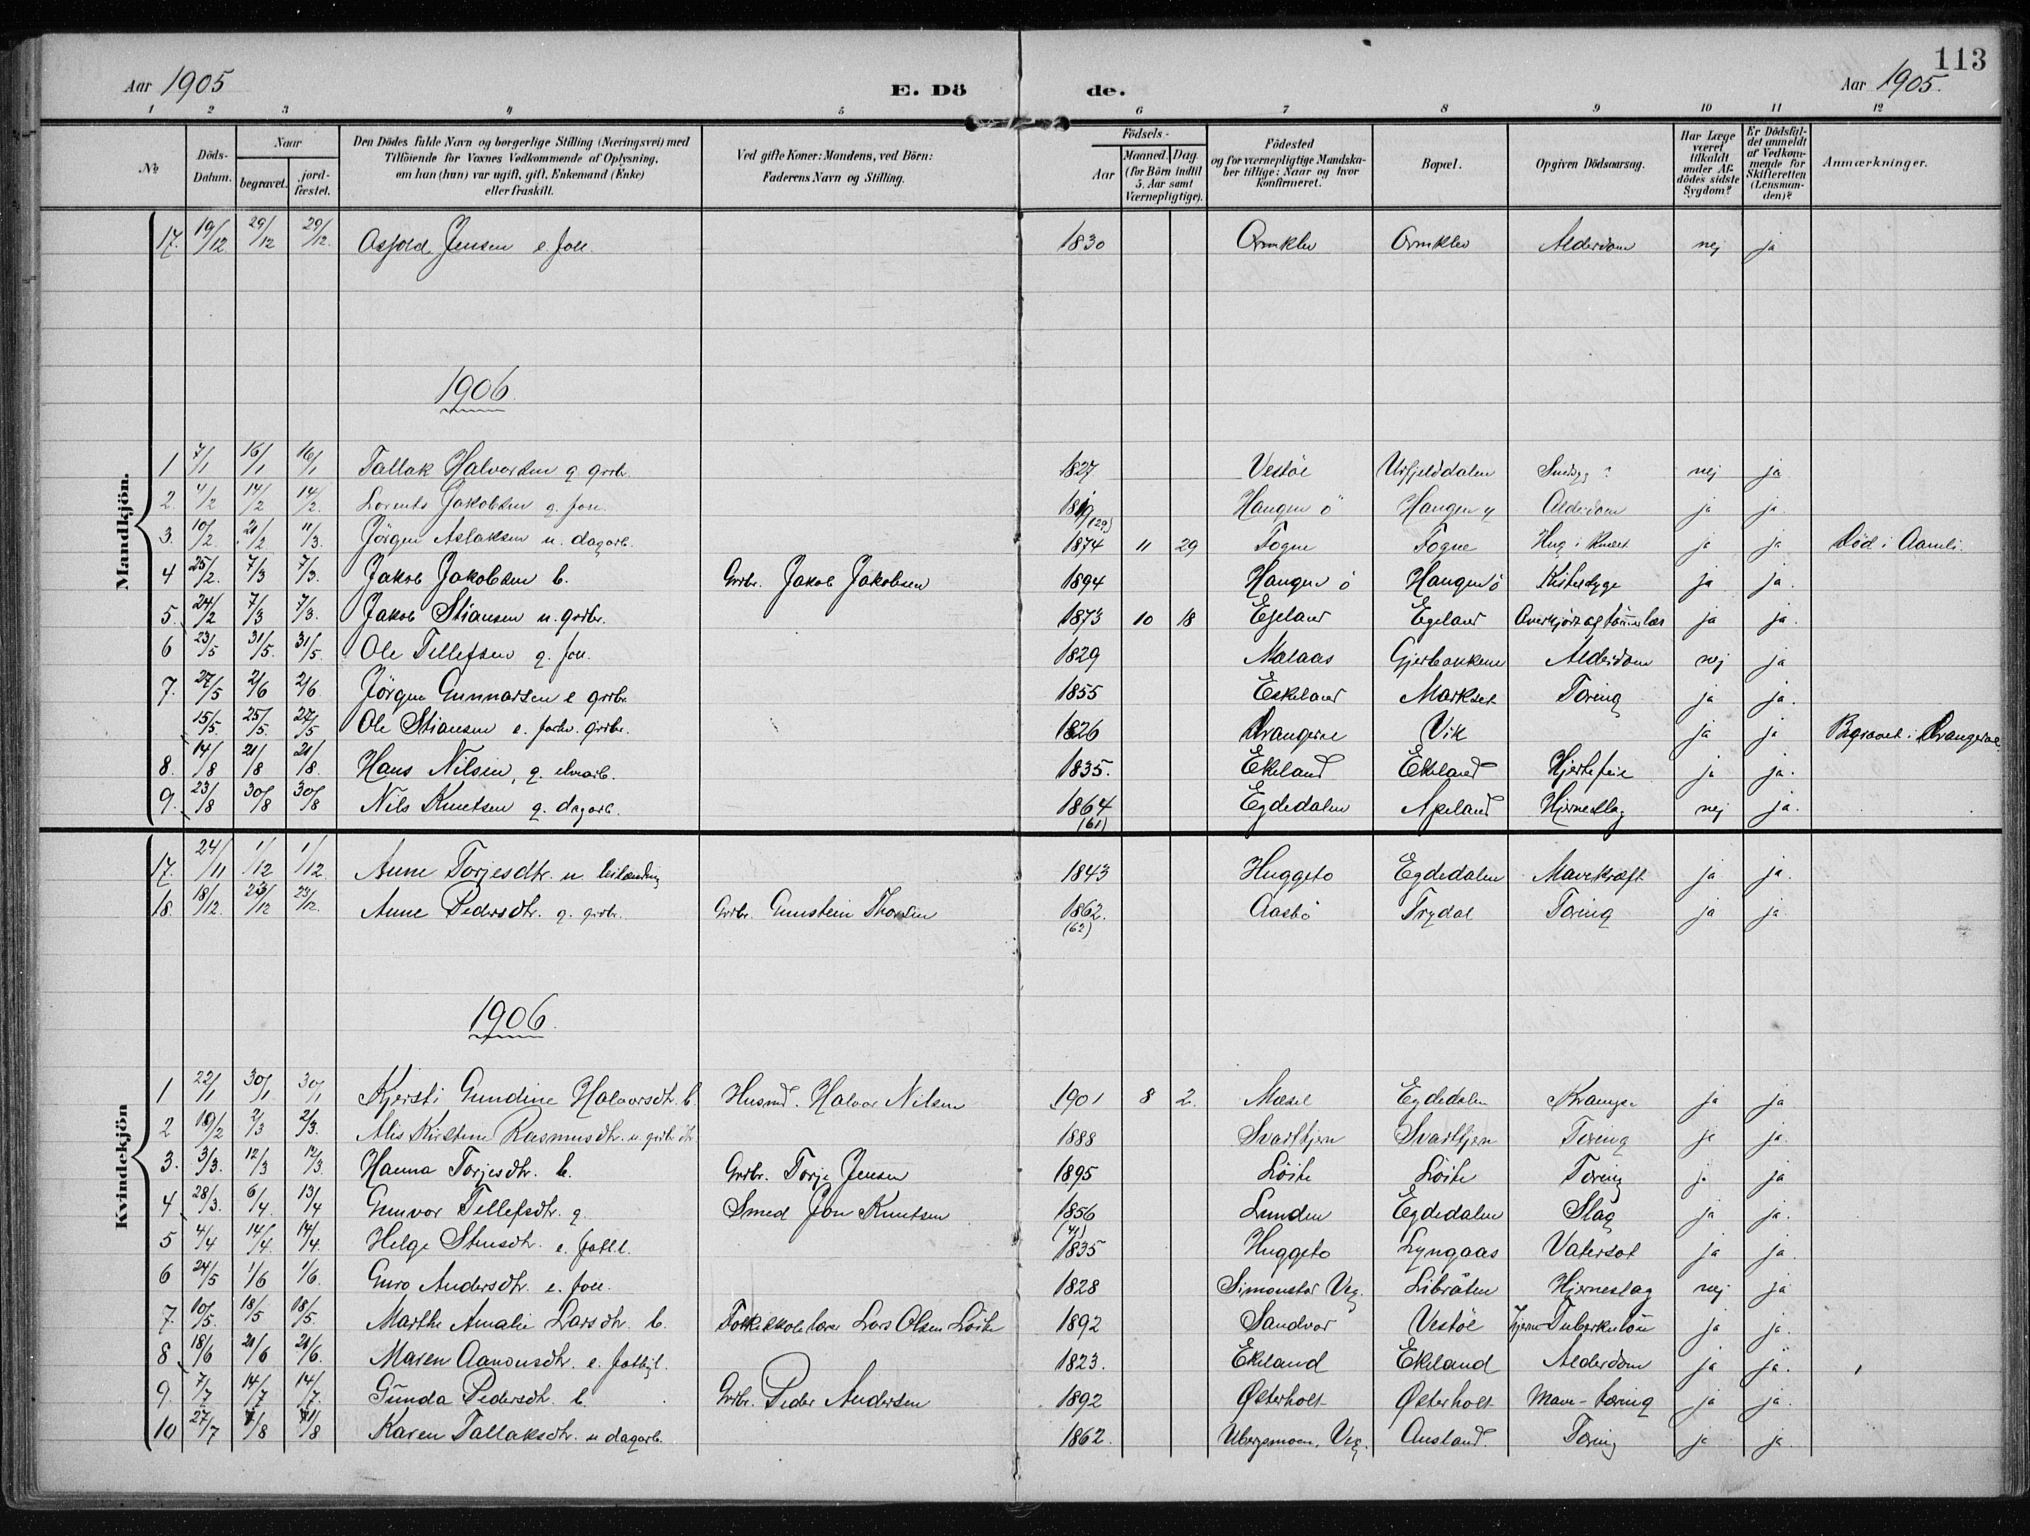 113
Aar 1905 E. Dö de. Aar 1905.
1 2 3 4 5 6 7 8 9 10 11 12
No Döds-Datum. Naar begravet. jordfæstet. Den Dödes fulde Navn og borgerlige Stilling (Næringsvei) med Tilföiende for Voxnes Vedkommende af Oplysning, om han (hun) var ugift, gift, Enkemand (Enke) eller fraskilt. Ved gifte Koner: Mandens, ved Börn: Faderens Navn og Stilling. Födsels- Aar Maaned. Dag (for Börn indtil 5. Aar samt Værnepligtige). Födested og for værnepligtige Mandskaber tillige: Naar og hvor Konfirmeret. Bopæl. Opgiven Dödsaarsag. Har Læge været tilkaldt under Afdödes sidste Sygdom? Er Dödsfaldet anmeldt af Vedkommende for Skifteretten (Lensmanden)? Anmærkninger.
Mandkjön.
17. 19/12 29/12 29/12. Jensen e. 1830 Ormklev Ormklev Alderdom nej ja
1906
1 7/1 16/1 16/1 Tallak Halvorsen g. grbr. 1827 Vestöl nej ja
2 4/2 14/2 14/2. Lorents Jakobsen g. Haugen ö Alderdom ja ja.
3. 10/2 21/2 11/3. Jörgen Aslaksen u. dagarb. 1874 11 29 Fogne Fogne Hug i Knæet ja ja Död i Aamli.
4 25/2. 7/3 7/3. Jakob Jakobsen b. Grbr. Jakob Jakobsen 1894 Haugen ö Haugen ö ja ja.
5. 24/2 7/3 7/3. Jakob Stiansen u. grbr. 1873 10 18 Egeland Egeland Overkjört af tömmerlæs ja ja.
6 23/5 31/5. 31/5. Ole Tellefsen g. 1829 Malaas Gjerbakkene Alderdom nej ja
7. 27/5 2/6 2/6. Jörgen Gunnarsen e grbr. 1855 Eskeland Markset Tæring ja ja
15/5. 25/5. 27/5 Ole Stiansen e. grbr. 1826 Vrangerne Vik ja ja Begravet i Vrangerne
8. 14/8 21/8 21/8. Hans Nilsen, g. elvearb. 1835. Ekeland Ekeland Hjertefeil ja ja.
9. 23/8 30/8 30/8 Nils Knutsen g. dagarb. 1864 Egdedalen Apeland Hjerneslag nej ja.
(61)
Kvindekjön
17. 24/11 1/12 1/12. Anne Torjesdtr. u. 1843 Huggeto Egdedalen Mavekræft ja ja.
18. 18/12. 23/12 23/12. Anne Pedersdtr. g. grbr. Grbr. Gunstein Thorsen 1862. Aasbö Trydal Tæring ja ja
(62)
1906.
1 22/1 30/1 30/1 Kjersti Gundine Halvorsdtr. b. Husmd. Halvor Nilsen 1901 8 2. Mæsel Egdedalen Krampe ja ja
2 19/2 2/3 2/3. Alis Kirstine Rasmusdtr. u. grbr. dtr. 1888 Svartjern Svartjern Tæring ja ja.
3. 3/3. 12/3 12/3. Hanna Torjesdtr. b. Grbr. Torje Jensen 1895 Löite Löite Tæring ja ja
4 28/3. 6/4. 13/4 Gunvor Tellefsdtr. g. Smed Jon Knutsen 1856 Lunden Egdedalen Slag ja ja.
5 4/4 14/4. 14/4. Helge Stensdtr. e. 1835 Huggeto Lyngaas Vatersot ja ja.
6 24/5 1/6 1/6. Guro Andersdtr. e. 1828 Simonstad Veg. Libråten Hjerneslag nej ja
7. 10/5. 18/5 18/5. Marthe Amalie Larsdtr. b. Folkeskolelærer Lars Olsen Löite 1892 Sandvor Vestöl Hjerne-Tuberkulose ja ja.
8 18/6 21/6 21/6. Maren Aanonsdtr. e. 1823. Ekeland Ekeland Alderdom ja ja.
9. 7/7 14/7 14/7. Gunda Pedersdtr. b. Grbr. Peder Andersen 1892 Østerholt Østerholt Mave-tæring ja ja
10 27/7 Karen Tallaksdtr. u dagarb. 1862. Ubergsmoen, Veg. Ausland. Tæring ja ja.